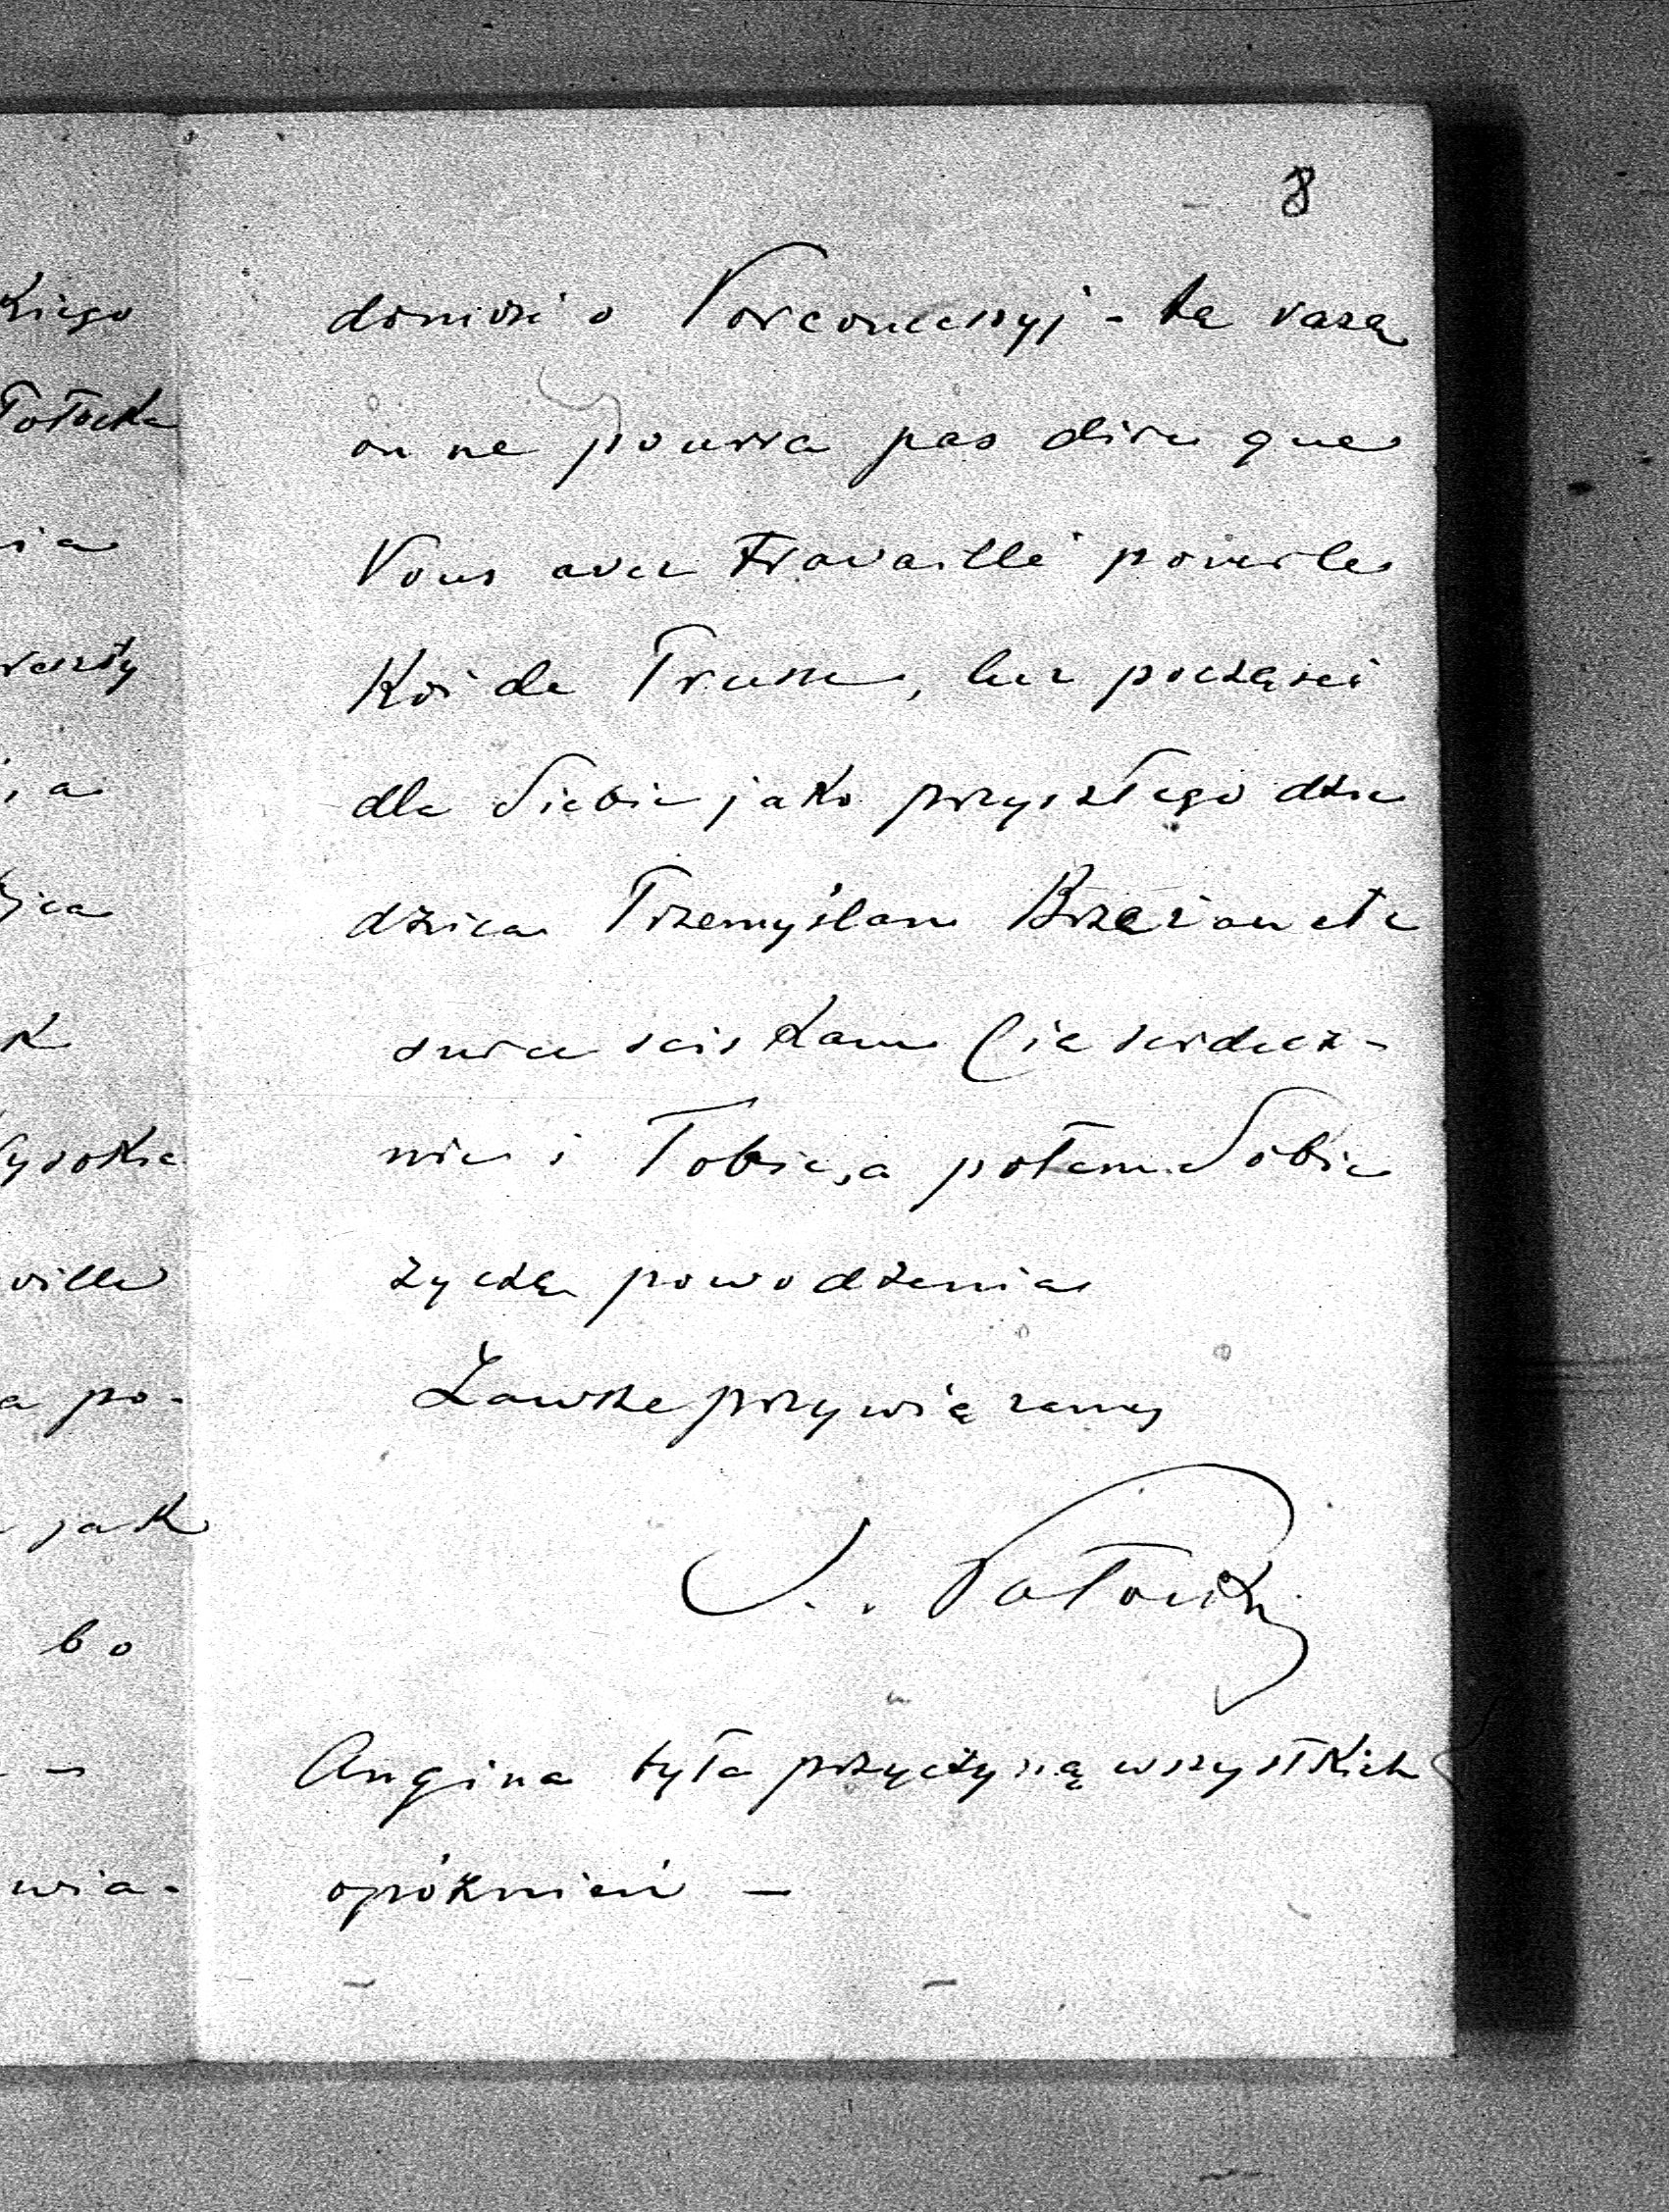 Kiego
Potocka
ia
reszty
ja
jca
K
Wysokie
ville
a po-
jak
bo
-
wia-
8
domość o Porconcssyj - tą razą
on ne pourra pas dire que
Vous avez travaillé pour le
Roi de Prusse, lecz poczęści
dla Siebie jako przyszłego dzie
dzica Przemyślan Brzeżan etc
ściskam Cię serdecz-
nie i Tobie, a potem Sobie
życzę powodzenia
Zawsze przywiązany
J. Potocki
Angina była przyczyną wszystkich
opóźnień -